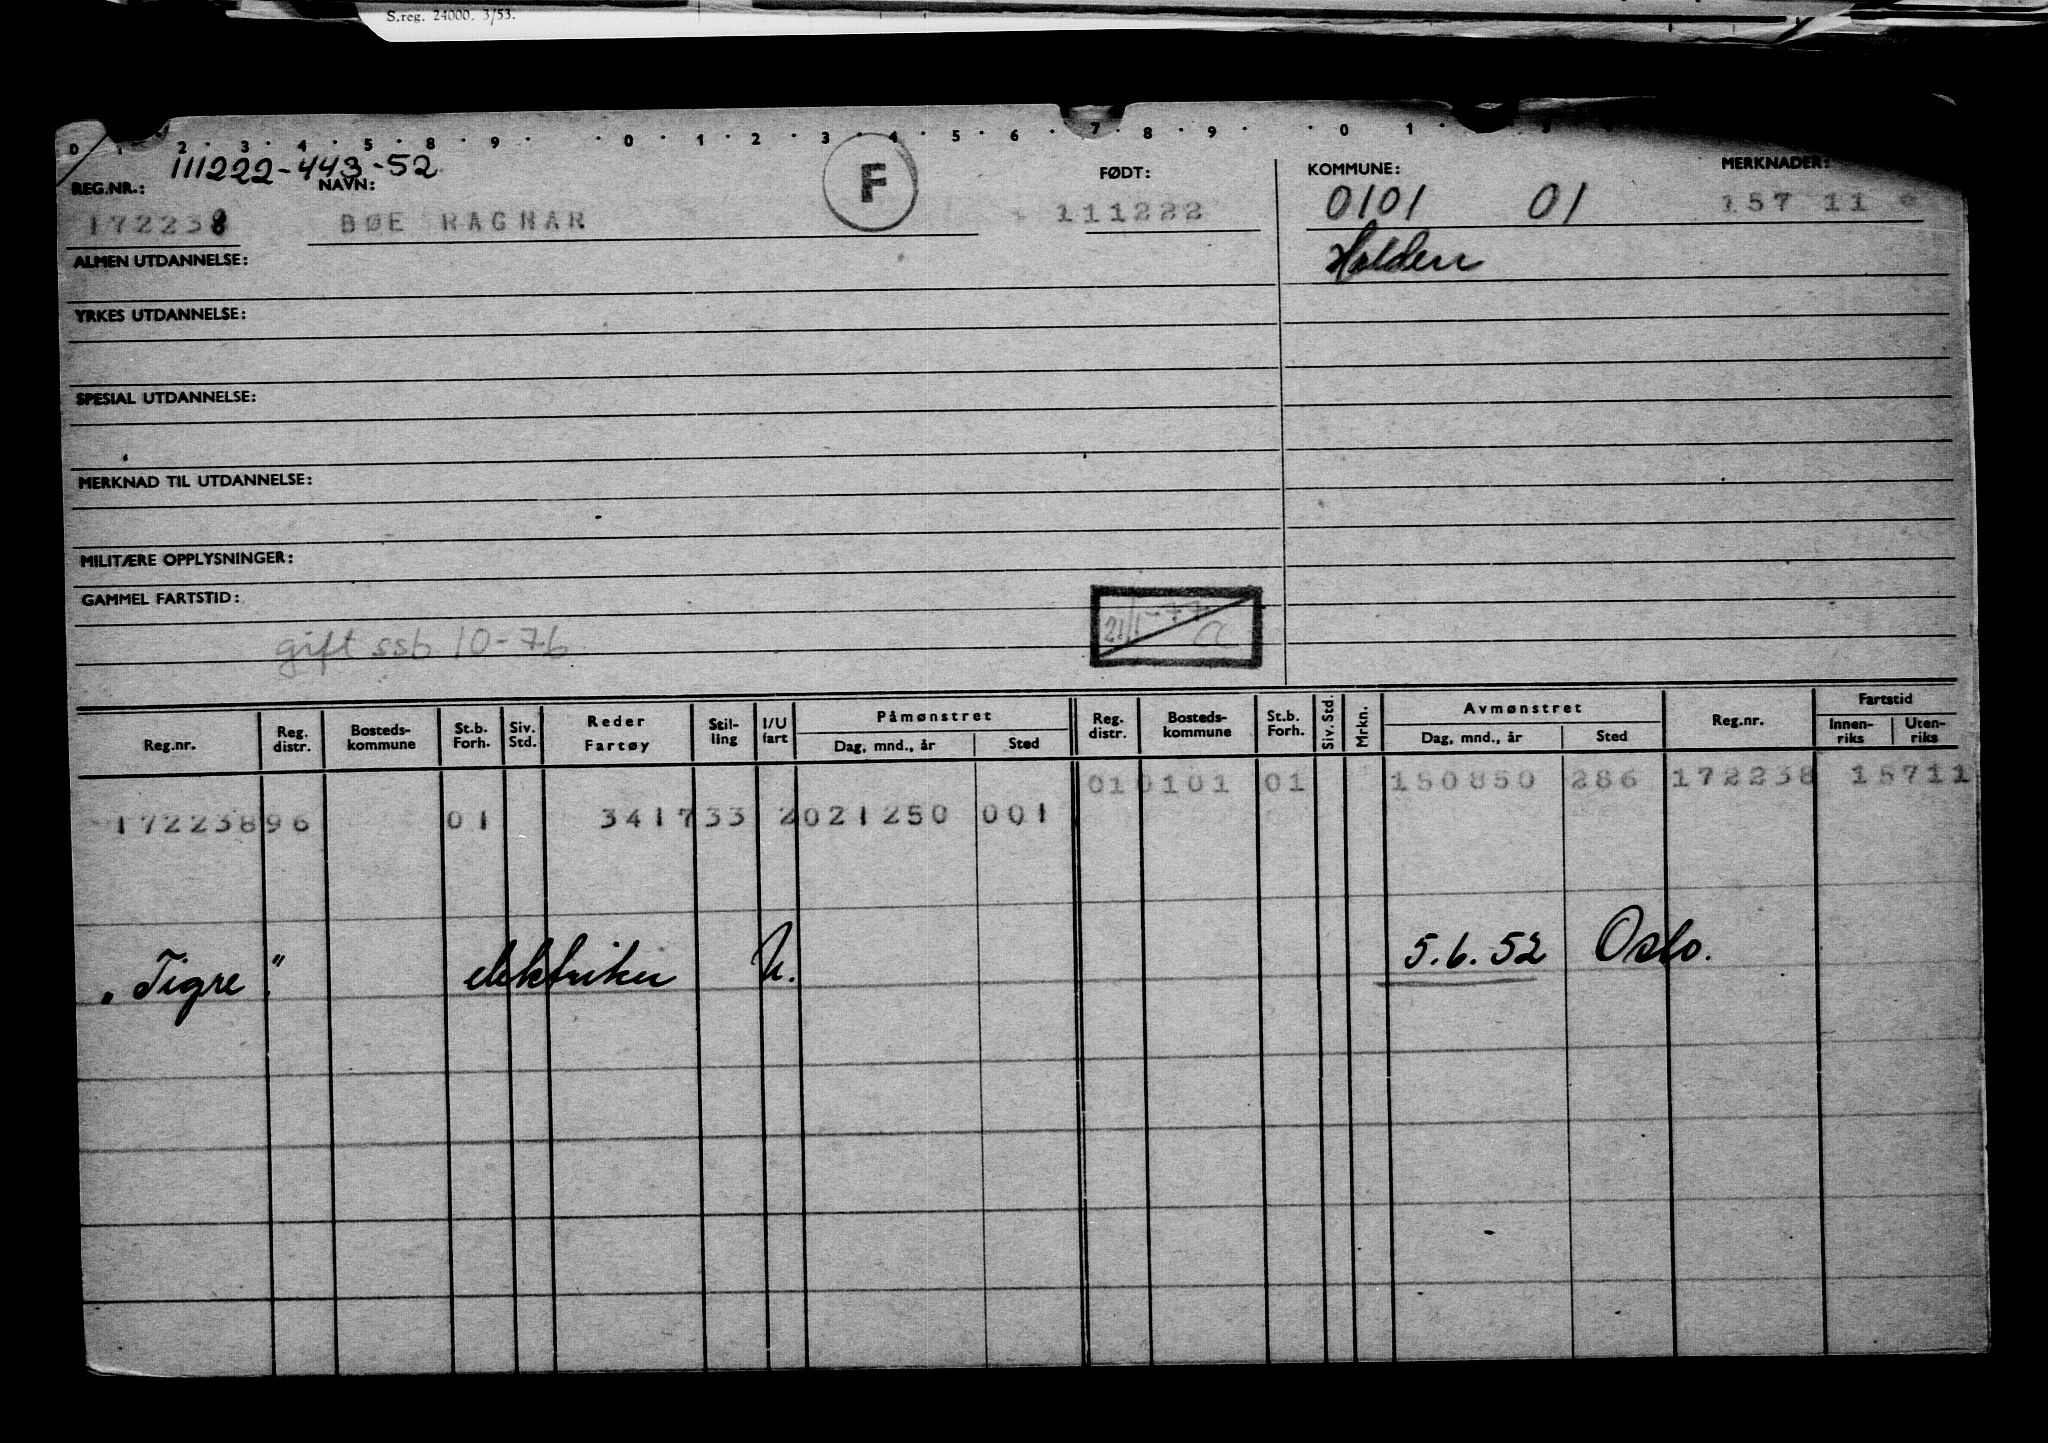 S.reg. 24000. 3/53.
0 1 2 3 4 5 8 9 0 1 2 3 4 5 6 7 8 9 0 1
111222-443-52
REG.NR.: NAVN: F FØDT: KOMMUNE: MERKNADER:
172238 BØE RAGNAR 111222 0101 01 157 11
ALMEN UTDANNELSE: Halden
YRKES UTDANNELSE:
SPESIAL UTDANNELSE:
MERKNAD TIL UTDANNELSE:
MILITÆRE OPPLYSNINGER:
GAMMEL FARTSTID:
gift ssb 10-76
Reg.nr. Reg. distr. Bosteds-kommune St.b. Forh. Siv. Std. Reder Fartøy Stil-ling I/U fart Påmønstret Dag, mnd., år Sted Reg. distr. Bosteds-kommune St.b. Forh. Siv. Std. Mrkn. Avmønstret Dag, mnd., år Sted Reg.nr. Fartstid Innen-riks Uten-riks
01 0101 01 150850 286 172238 15711
172238 96 01 3417 33 2 021250 001
„Tigre". elektriker U. 5.6.52 Oslo.